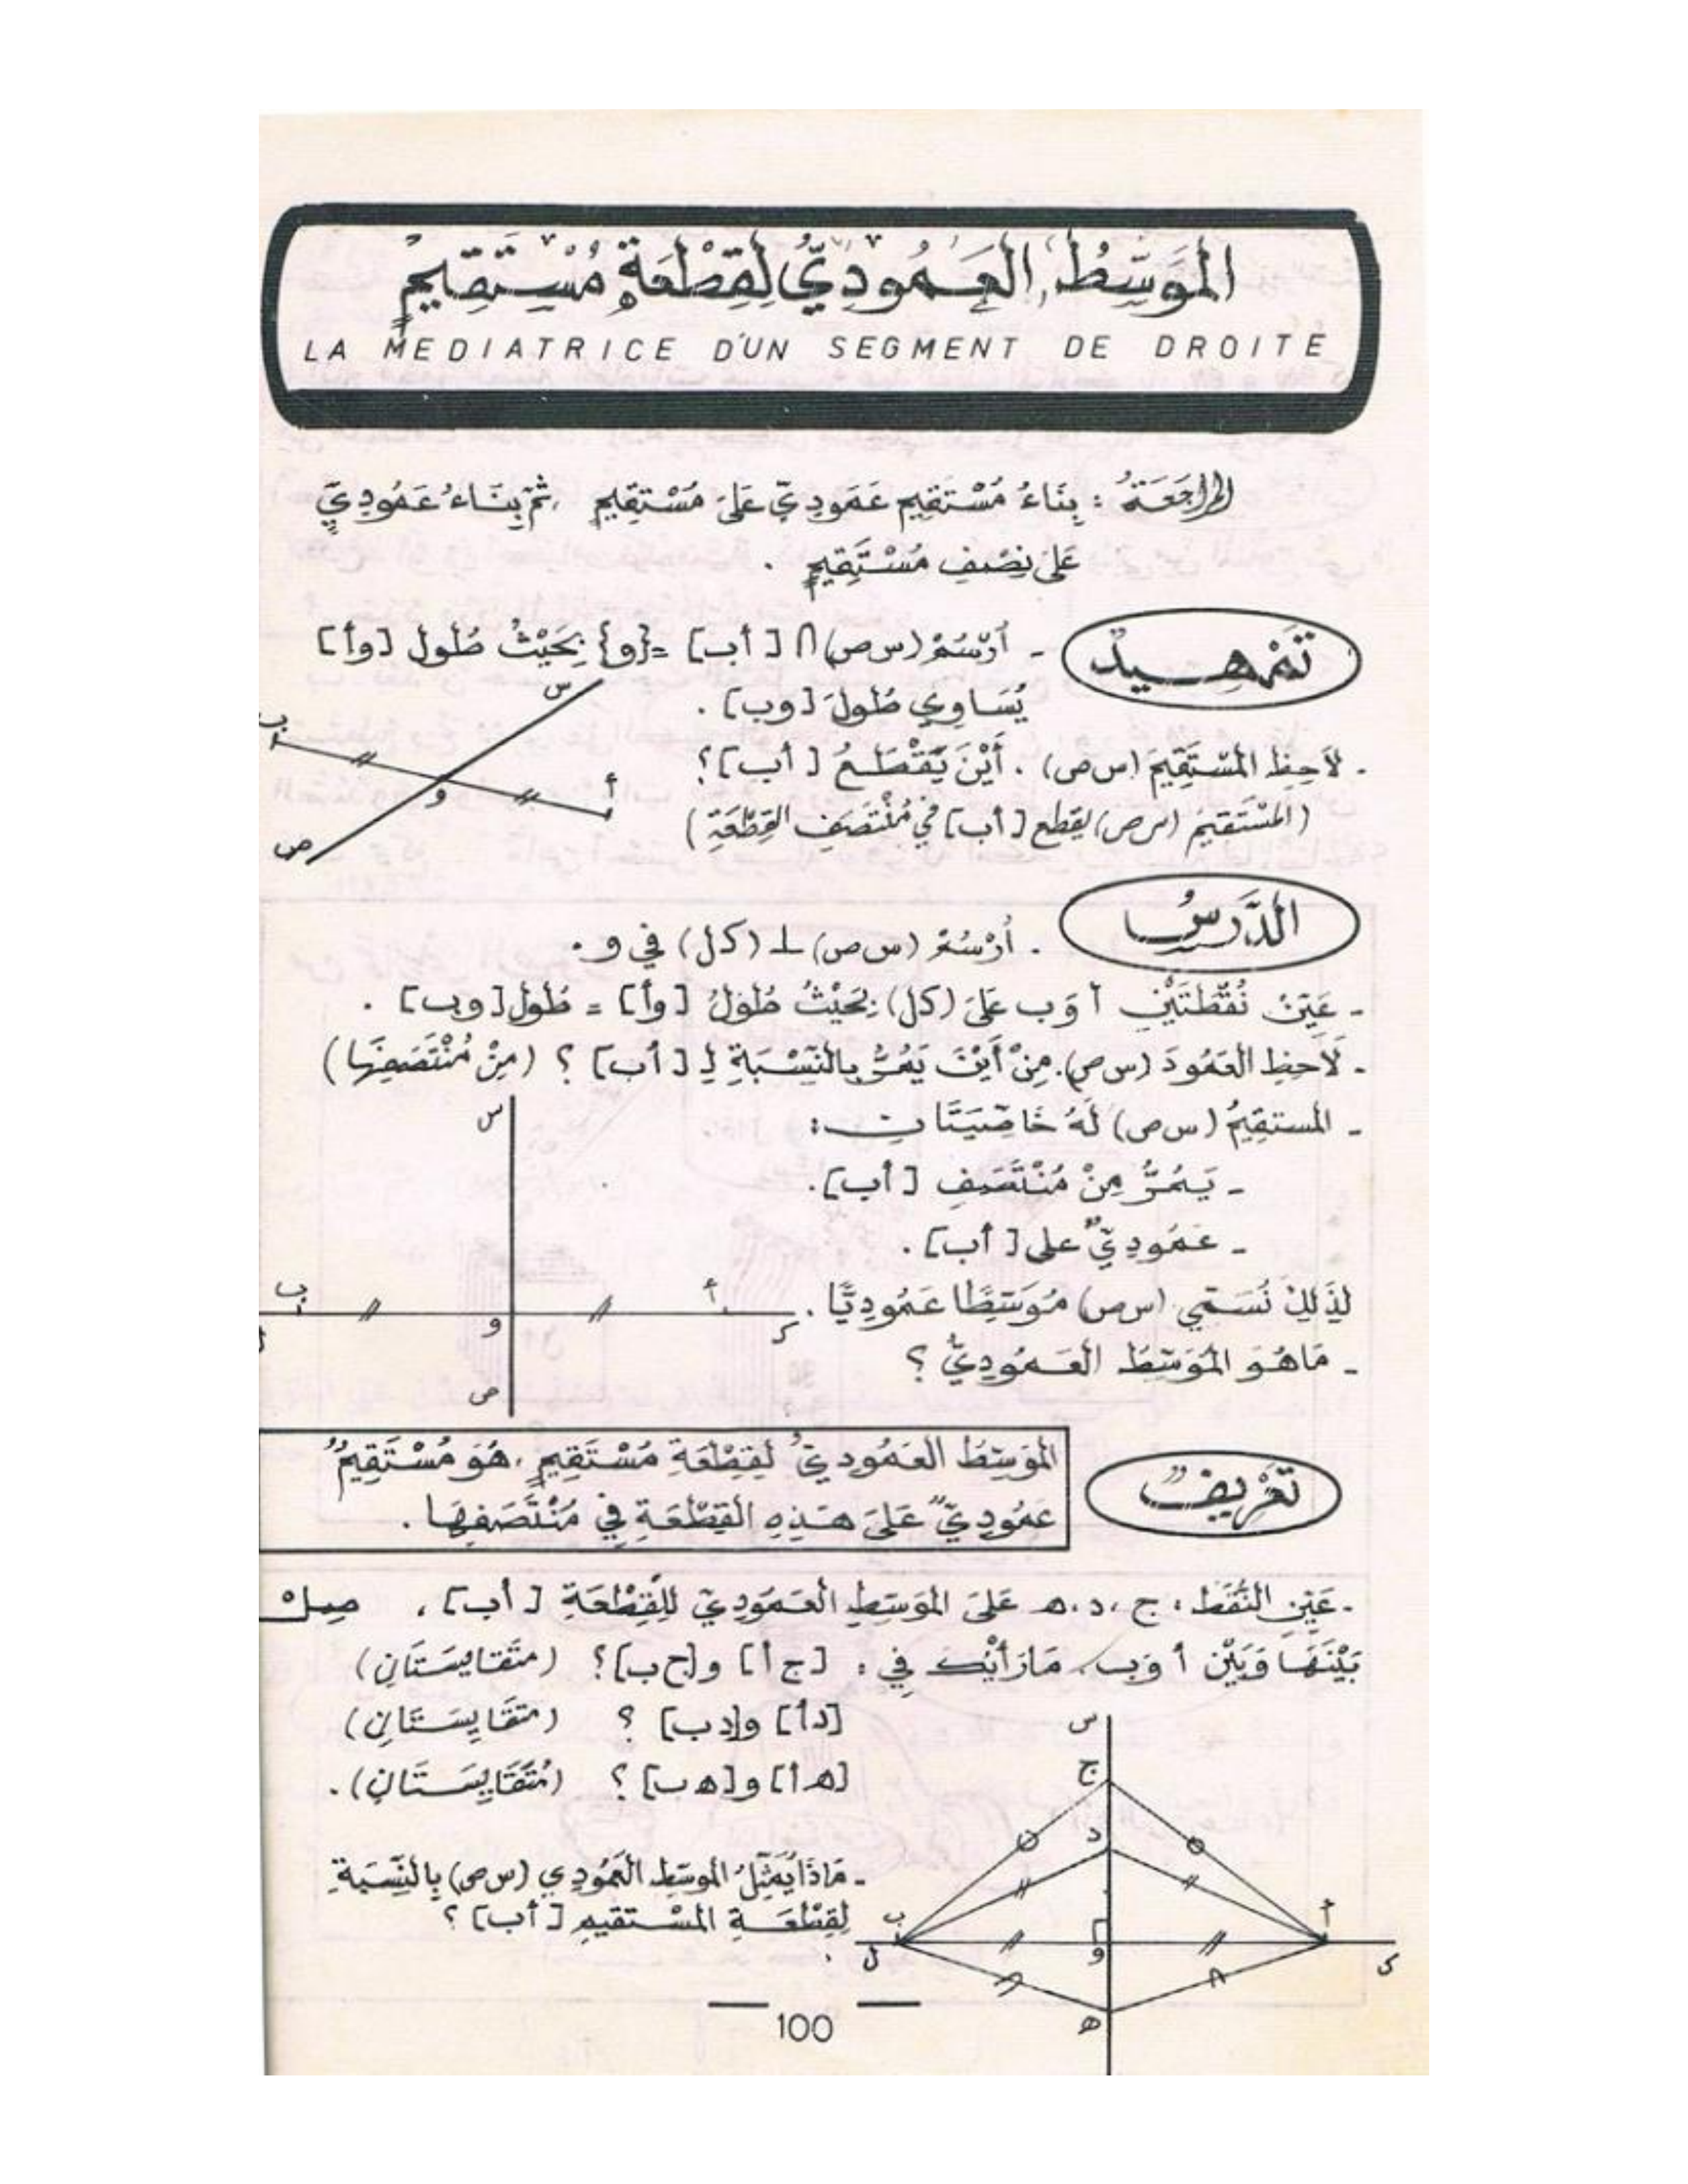 المُوَسِّطُ العَمُودِيُّ لِقِطْعَةِ مُسْتَقِيمٍ
LA MEDIATRICE D'UN SEGMENT DE DROITE
المراجَعَةُ : بِنَاءُ مُسْتَقِيم عَمَودِيّ عَلَى مُسْتَقِيم ، ثُمّ بِنَاءُ عَمُودِيّ
عَلَى نِصْفِ مُسْتَقِيمٍ .
تَمْهِيدٌ
- اُرْسُمْ (س ص) ∩ [ أ ب ] = {و} بِحَيْثُ طُول [و أ]
يُسَاوِي طُولَ [و ب] .
- لَاحِظِ المُسْتَقِيمَ (س ص) . أَيْنَ يَقْطَعُ [ أ ب ] ؟
(المُسْتَقِيمُ (س ص) يقطع [ أ ب ] في مُنْتَصَفِ القِطْعَةِ )
س
ب
أ
و
ص
الدَّرْسُ
. اُرْسُمْ (س ص) ⊥ (ك ل) في و .
- عَيّنْ نُقْطَتَيْنِ أ وَ ب عَلَى (ك ل) بِحَيْثُ طُولُ [و أ] = طُول [و ب] .
- لَاحِظِ العَمُودَ (س ص). مِنْ أَيْنَ يَمُرُّ بالنّسْبَةِ لِـ [ أ ب ] ؟ (مِنْ مُنْتَصَفِهَا)
- المستقِيمُ (س ص) لَهُ خَاصِّيَتَانِ :
- يَمُرُّ مِنْ مُنْتَصَفِ [ أ ب ] .
- عَمُودِيٌّ على [ أ ب ] .
لِذَلِكَ نُسَمّي (س ص) مُوَسِّطًا عَمُودِيًّا .
- مَا هُوَ المُوَسّطُ العَمُودِيُّ ؟
س
ب
أ
و
ك
ل
ص
تَعْرِيفٌ
المُوَسِّطُ العَمُودِيّ لِقِطْعَةِ مُسْتَقِيمٍ ، هُوَ مُسْتَقِيمٌ
عَمُودِيٌّ عَلَى هَذِهِ القِطْعَةِ فِي مُنْتَصَفِهَا .
- عَيّنِ النُّقَطَ ، ج ، د ، هـ عَلَى المُوَسّطِ العَمُودِيّ لِلْقِطْعَةِ [ أ ب ] ، صِلْ
بَيْنَهَا وَبَيْنَ أ وَ ب ، مَا رَأْيُكَ فِي : [ج أ] و [ج ب] ؟ (متَقَايِسَتَانِ)
[د أ] و [د ب] ؟ (متَقَايِسَتَانِ)
[هـ أ] و [هـ ب] ؟ (مُتَقَايِسَتَانِ) .
- مَاذَا يُمَثّلُ الموسّط العَمُودِي (س ص) بِالنّسْبَةِ
لِقِطْعَةِ المُسْتَقِيمِ [ أ ب ] ؟
س
ج
د
ب
أ
ل
و
ك
هـ
100